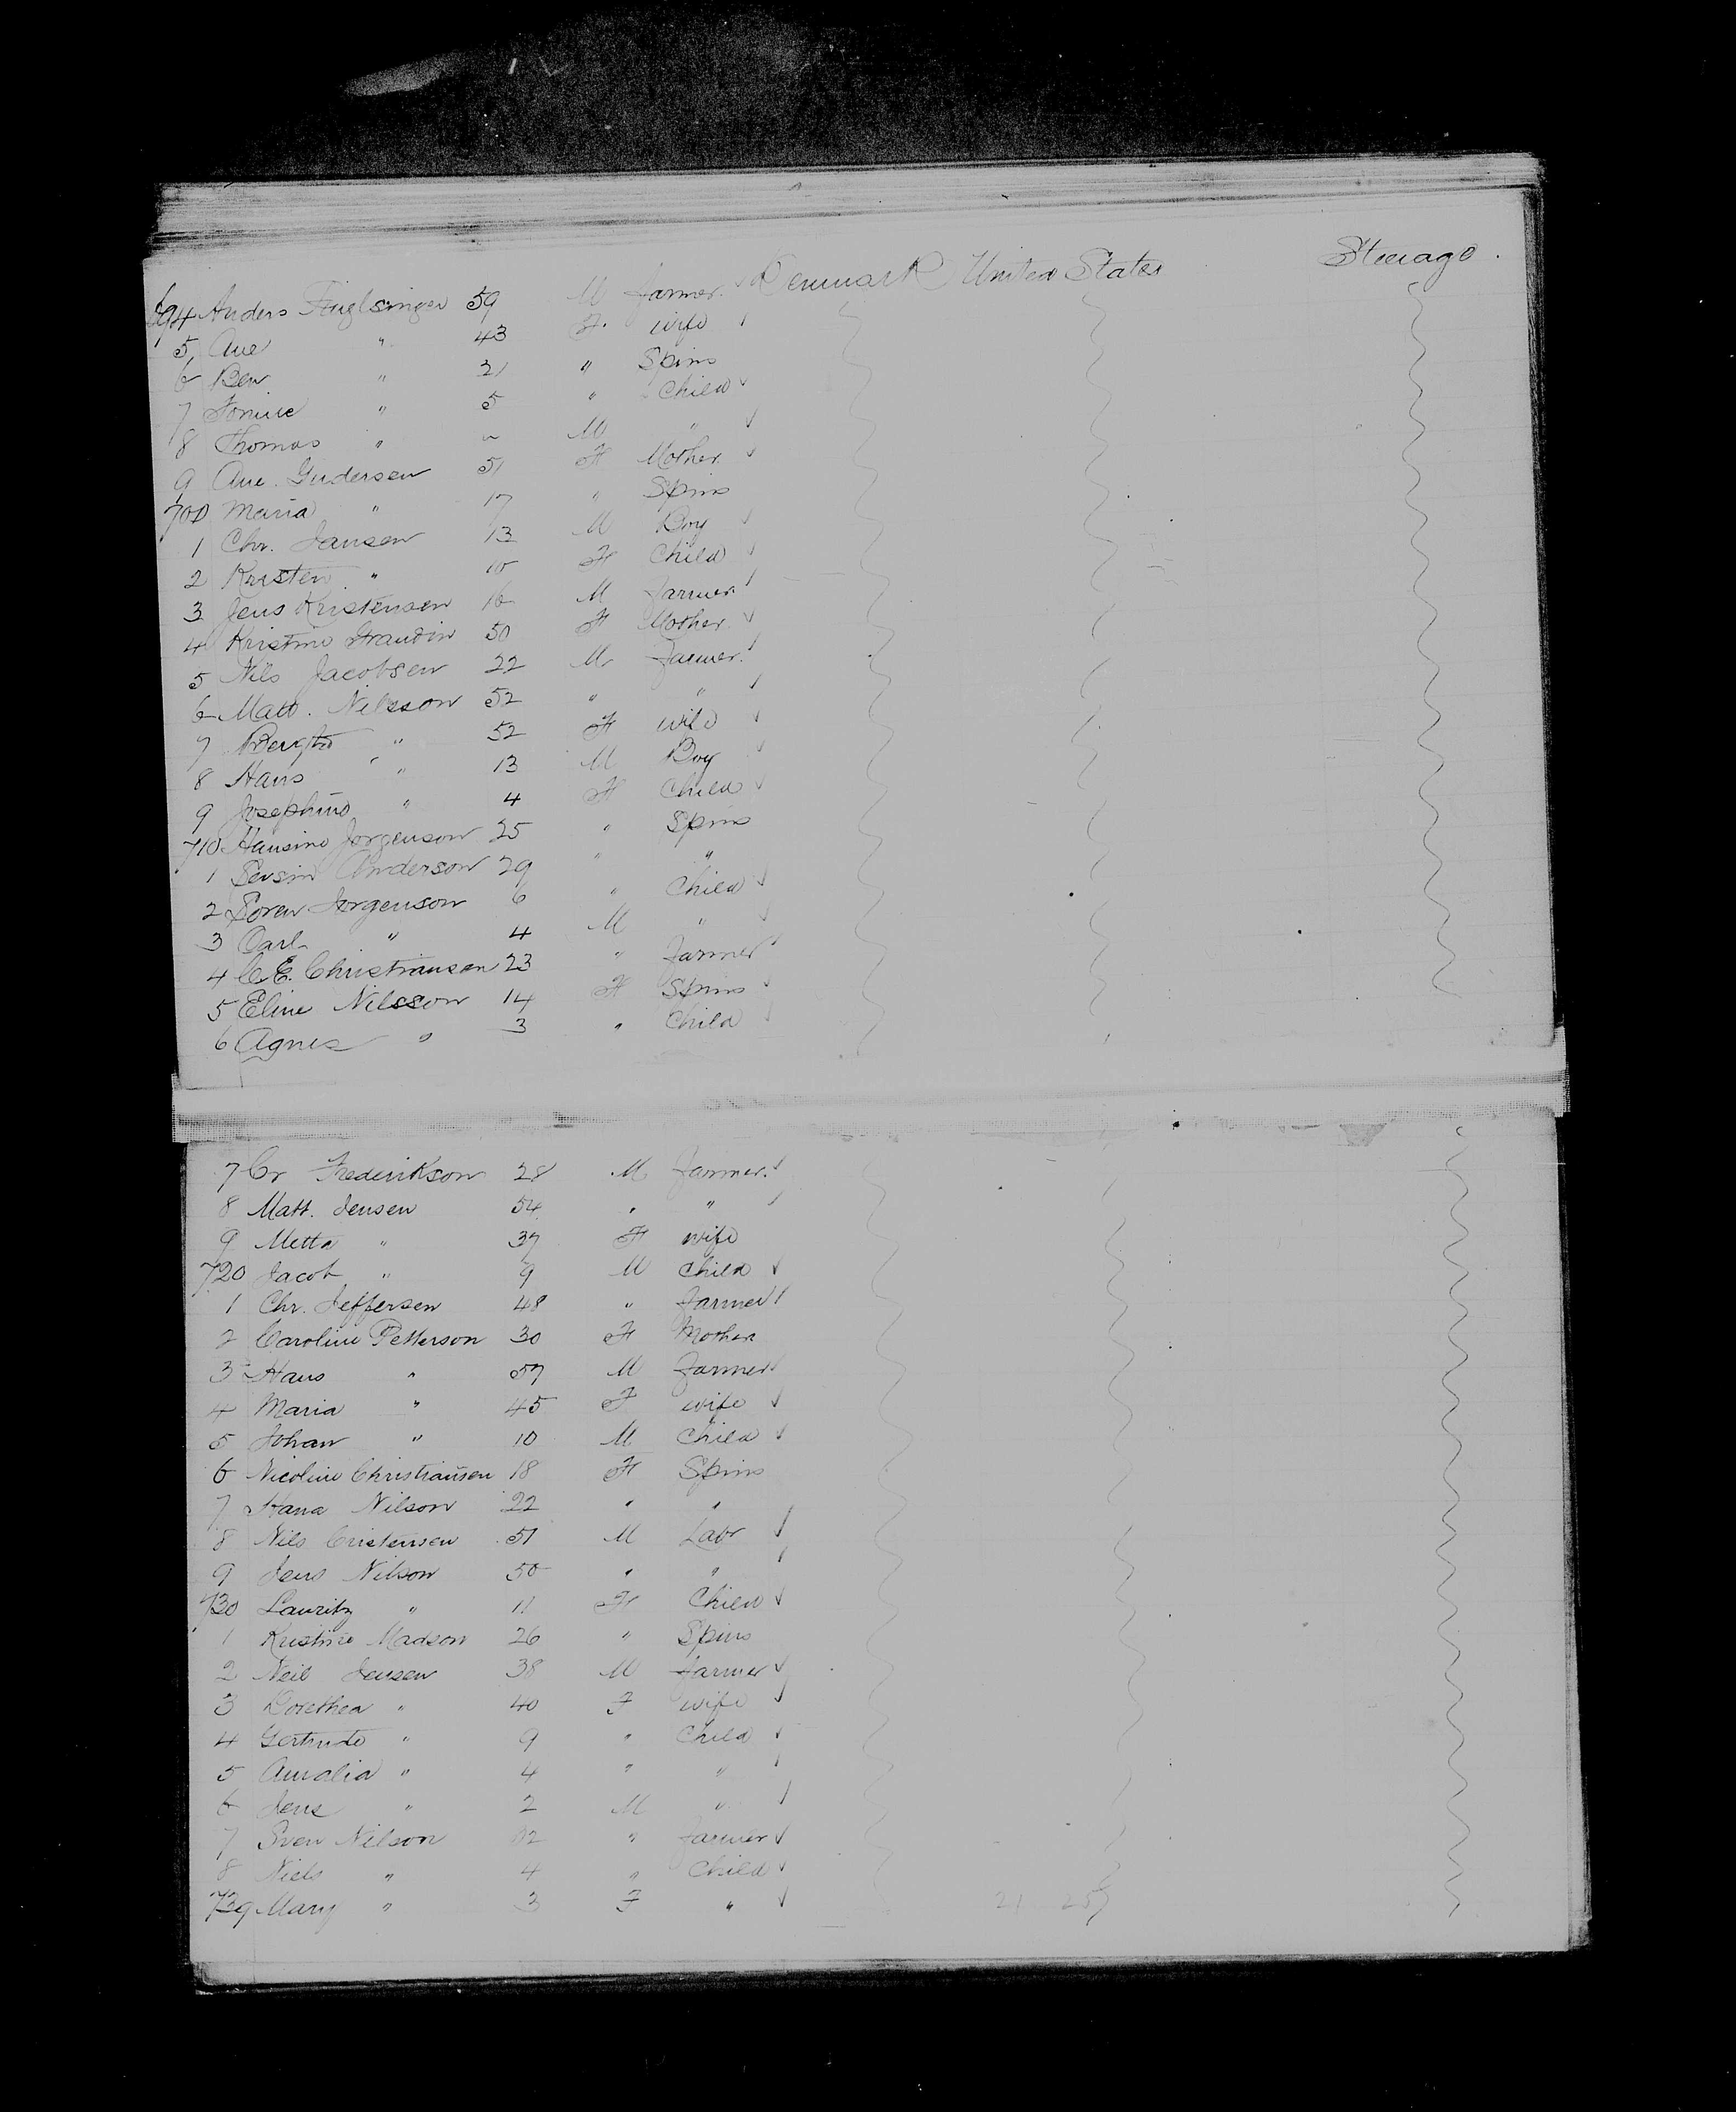 694 Anders 59 M Farmer Denmark United States Steerage.
5 Ane " 43 F. wife
6 Ben " 21 " Spins
7 " 5 " Child
8 Thomas " M "
9 Ane. Gudersen 51 F Mother
700 Maria " 17 " Spins
1 Chr. Jansen 13 M Boy
2 Kristen " 10 F Child
3 Jens Kristensen 16 M Farmer
4 Kristine 50 F Mother
5 Nils Jacobsen 22 M Farmer
6 Matt. Nilsson 52 " "
7 " 52 F wife
8 Hans " 13 M Boy
9 Josephine " 4 F Child
710 Hansine Jorgenson 25 " Spins
1 Anderson 29 " "
2 Soren Jorgenson 6 " Child
3 Carl " 4 M "
4 C.E. Christiansen 23 " Farmer
5 Eline Nilsson 14 F Spins
6 Agnes " 3 " Child
7 Cr Frederikson 28 M Farmer
8 Matt. Jensen 54 " "
9 Metta " 37 F wife
720 Jacob " 9 M Child
1 Chr. Jeffersen 48 " Farmer
2 Caroline Petterson 30 F Mother
3 Hans " 57 M Farmer
4 Maria " 45 F wife
5 Johan " 10 M Child
6 Nicoline Christiansen 18 F Spins
7 Hana Nilson 22 " "
8 Nils Cristensen 51 M Labr
9 Jens Nilson 50 " "
730 Lauritz " 11 F Child
1 Kristine Madson 26 " Spins
2 Neil Jensen 38 M Farmer
3 Dorethea " 40 F wife
4 Gertrude " 9 " Child
5 Amalia " 4 " "
6 Jens " 2 M "
7 Sven Nilson 32 " Farmer
8 Niels " 4 " Child
739 Mary " 3 F " 21 257